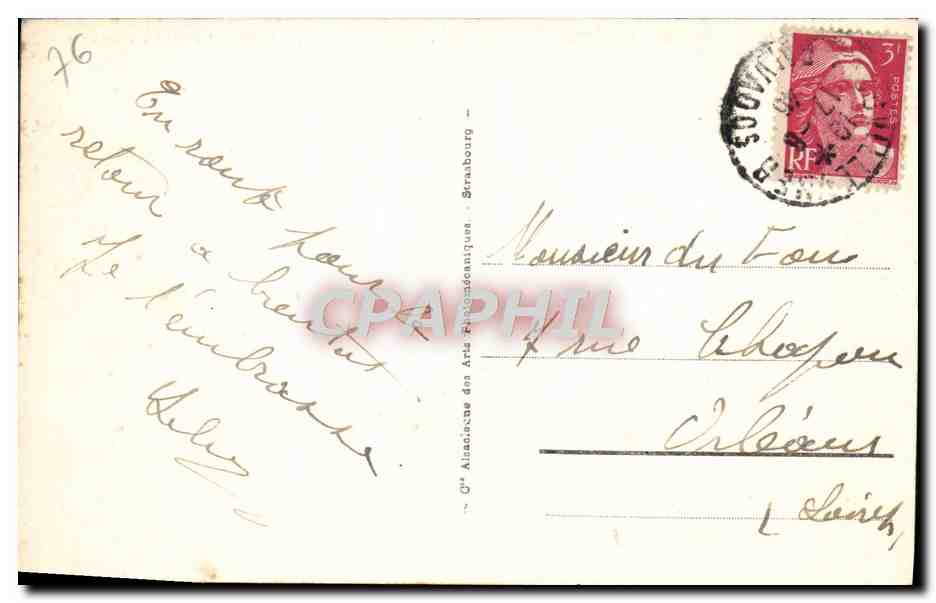 76
En route pour le
retour a bientot
Je t'embrasse
3F
POSTES
RF
CALVADOS
Cie Alsacienne des Arts Photomécaniques. - Strasbourg -
Monsieur du Fou
7 rue Chapon
Orléans
(Loiret)
CPAPHIL